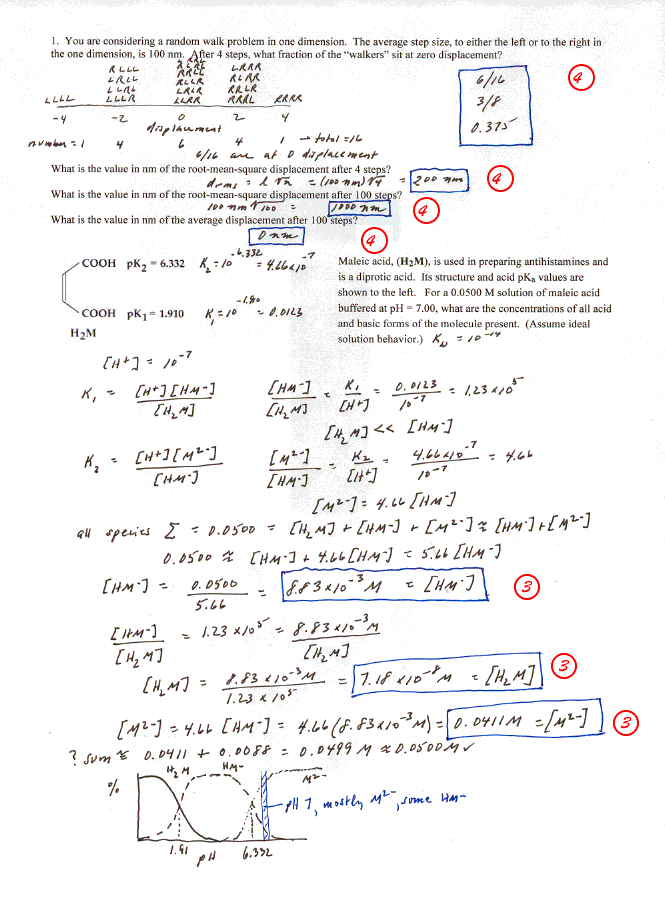 1. You are considering a random walk problem in one dimension. The average step size, to either the left or to the right in
the one dimension, is 100 nm. After 4 steps, what fraction of the "walkers" sit at zero displacement?
RLLL RLRL LRRR
LRLL RRLL RLRR
LLRL RLLR RRLR
LLLL LLLR LLRR RRRL RRRR
LRLR
-4 -2 0 2 4
displacement
number = 1 4 6 4 1 → total = 16
6/16 are at 0 displacement
6/16
3/8
0.375
4
What is the value in nm of the root-mean-square displacement after 4 steps?
drms = l √n = (100 nm)√4 = 200 nm
4
What is the value in nm of the root-mean-square displacement after 100 steps?
100 nm √100 = 1000 nm
4
What is the value in nm of the average displacement after 100 steps?
0 nm
4
COOH pK2 = 6.332 K2 = 10^-6.332 = 4.66x10^-7
COOH pK1 = 1.910 K1 = 10^-1.90 = 0.0123
H2M
Maleic acid, (H2M), is used in preparing antihistamines and
is a diprotic acid. Its structure and acid pKa values are
shown to the left. For a 0.0500 M solution of maleic acid
buffered at pH = 7.00, what are the concentrations of all acid
and basic forms of the molecule present. (Assume ideal
solution behavior.) Kw = 10^-14
[H+] = 10^-7
K1 = [H+][HM-] / [H2M] [HM-] / [H2M] = K1 / [H+] = 0.0123 / 10^-7 = 1.23 x10^5
[H2M] << [HM-]
K2 = [H+][M2-] / [HM-] [M2-] / [HM-] = K2 / [H+] = 4.66x10^-7 / 10^-7 = 4.66
[M2-] = 4.66 [HM-]
all species Σ = 0.0500 = [H2M] + [HM-] + [M2-] ≈ [HM-] + [M2-]
0.0500 ≈ [HM-] + 4.66[HM-] = 5.66 [HM-]
[HM-] = 0.0500 / 5.66 = 8.83x10^-3 M = [HM-]
3
[HM-] / [H2M] = 1.23 x10^5 = 8.83 x10^-3 M / [H2M]
[H2M] = 8.83 x10^-3 M / 1.23 x 10^5 = 7.18 x10^-8 M = [H2M]
3
[M2-] = 4.66 [HM-] = 4.66 (8.83x10^-3 M) = 0.0411 M = [M2-]
3
? sum ≈ 0.0411 + 0.0088 = 0.0499 M ≈ 0.0500 M ✓
H2M HM- M2-
%
pH 7, mostly M2-, some HM-
1.91 pH 6.332